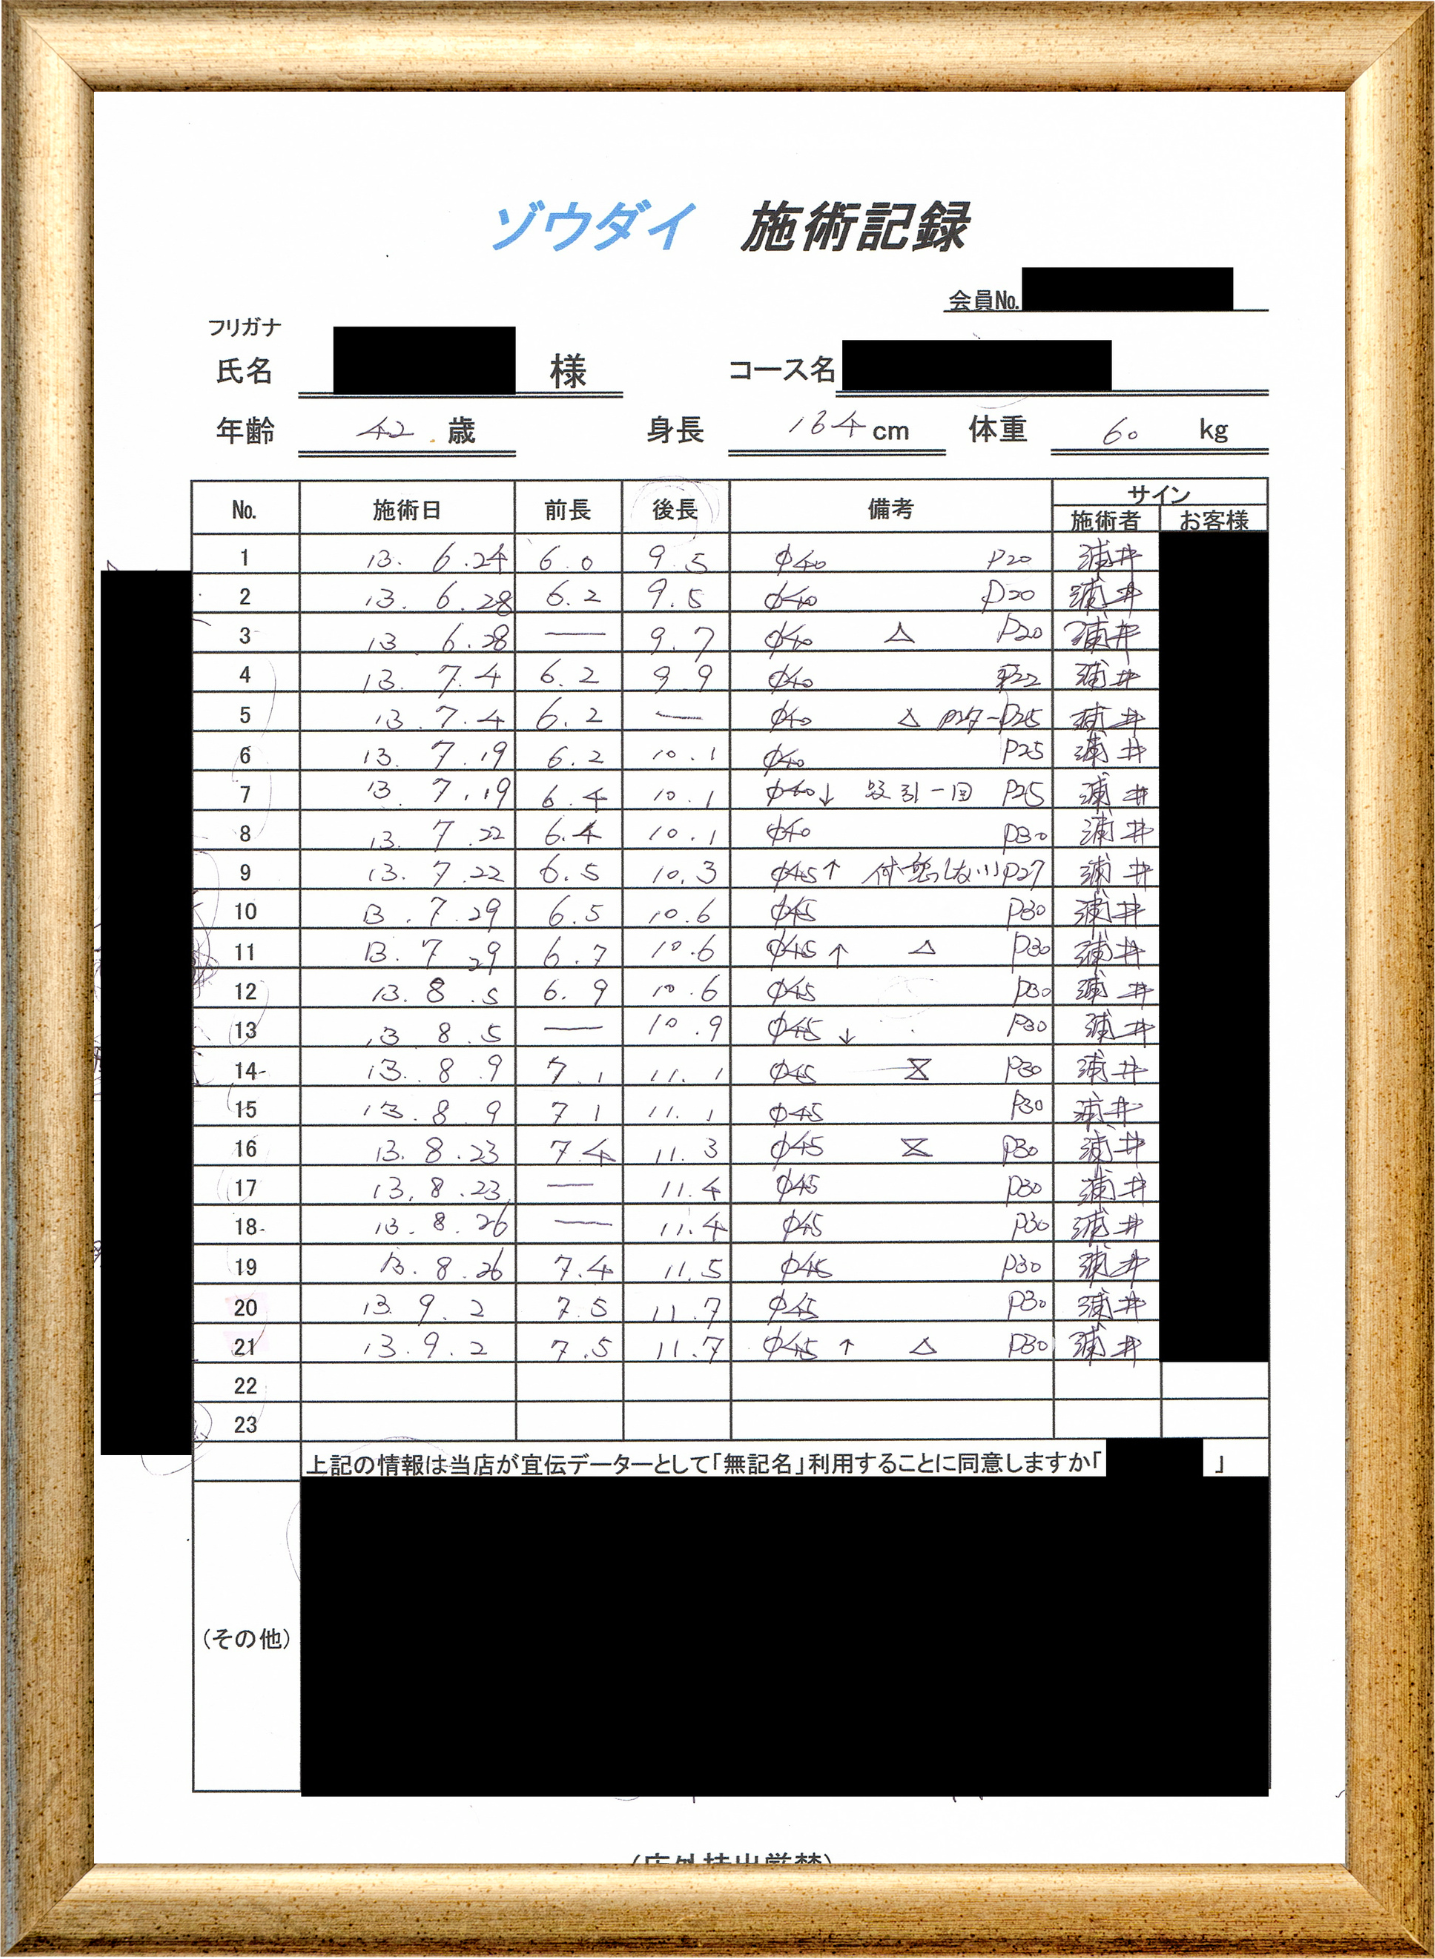 ゾウダイ 施術記録
会員No.
フリガナ
氏名 様 コース名
年齢 42 歳 身長 164 cm 体重 60 kg
No. 施術日 前長 後長 備考 サイン
施術者 お客様
1 13. 6.24 6.0 9.5 φ40 P20 浦井
2 13. 6.28 6.2 9.5 φ40 P20 浦井
3 13 6.28 — 9.7 φ40 △ P20 浦井
4 13. 7.4 6.2 9.9 φ40 浦井
5 13.7.4 6.2 — φ40 △ P27-P25 浦井
6 13. 7.19 6.2 10.1 φ40 P25 浦井
7 13. 7.19 6.4 10.1 φ40↓ 引一回 P25 浦井
8 13. 7.22 6.4 10.1 φ40 P30 浦井
9 13. 7.22 6.5 10.3 φ45↑ P27 浦井
10 13.7.29 6.5 10.6 φ45 P30 浦井
11 13.7 29 6.7 10.6 φ45↑ △ P30 浦井
12 13.8.5 6.9 10.6 φ45 P30 浦井
13 13 8.5 — 10.9 φ45↓ P30 浦井
14 13. 8.9 7.1 11.1 φ45 P30 浦井
15 13.8.9 7 1 11.1 φ45 P30 浦井
16 13.8.23 7.4 11.3 φ45 P30 浦井
17 13.8.23 — 11.4 φ45 P30 浦井
18 13.8.26 — 11.4 φ45 P30 浦井
19 13.8.26 7.4 11.5 φ45 P30 浦井
20 13.9.2 7.5 11.7 φ45 P30 浦井
21 13.9.2 7.5 11.7 φ45↑ △ P30 浦井
22
23
上記の情報は当店が宣伝データーとして「無記名」利用することに同意しますか「 」
(その他)